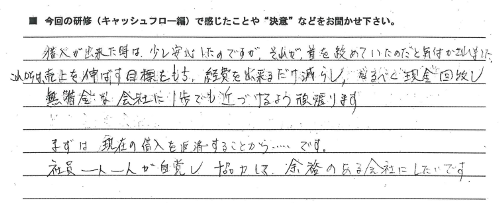 ■ 今回の研修(キャッシュフロー編)で感じたことや“決意”などをお聞かせ下さい。
借入が出来た時は、少し安心したのですが、それが、首を絞めていたのだと気付かされました
これからは売上を伸ばす目標をもち、経費を出来るだけ減らし、なるべく現金回収し
無借金な会社に1歩でも近づけるよう頑張ります
まずは現在の借入を返済することから……です。
社員一人一人が自覚し協力して、余裕のある会社にしたいです。